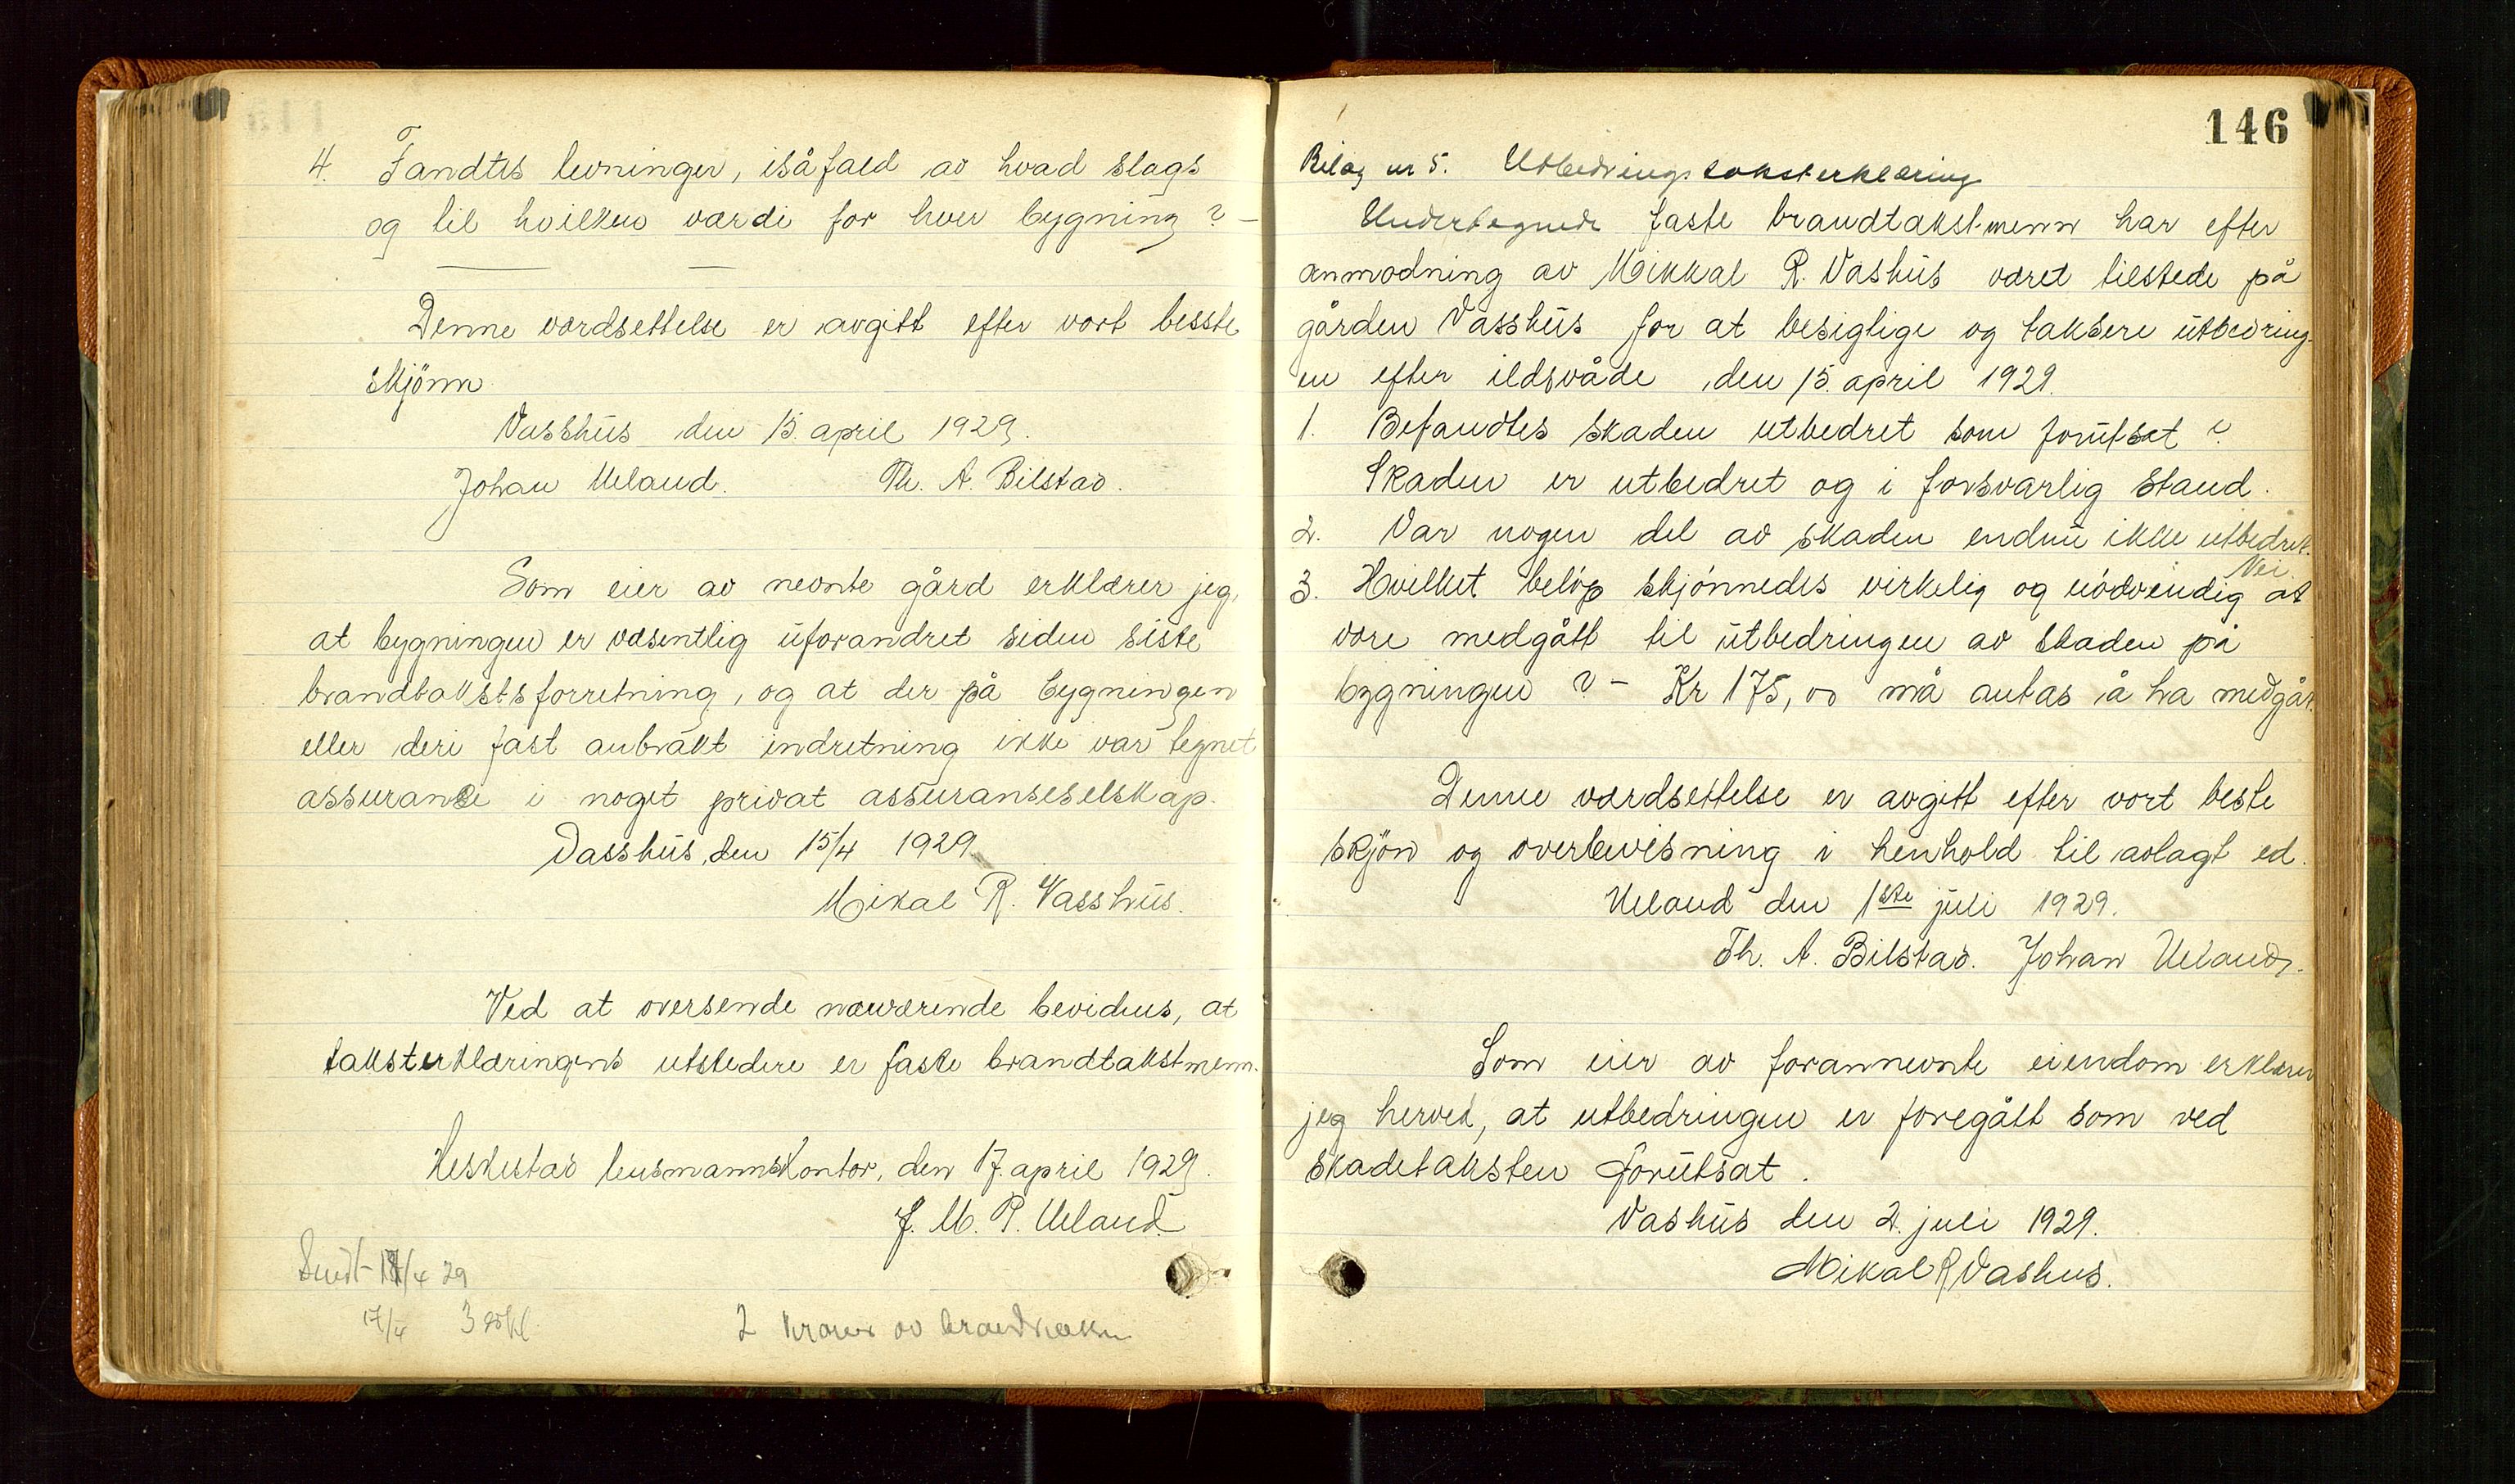 4. Fandtes levninger, isåfald av hvad slags
og til hvilken værdi for hver bygning? -
Denne værdsettelse er avgitt efter vort besste
skjønn
Vasshus den 15. april 1929.
Johan Ueland. Th. A. Bilstad.
Som eier av nevnte gård erklærer jeg,
at bygningen er væsentlig uforandret siden siste
brandtakstsforretning, og at der på bygningen
eller deri fast anbrakt indretning ikke var tegnet
assuranse i noget privat assuranseselskap.
Vasshus, den 15/4 1929.
Mikal R. Vasshus.
Ved at oversende nærværende bevidnes, at
taksterklæringens utstedere er faste brandtakstmenn.
Heskestad lensmannskontor, den 17. april 1929.
J. M. P. Ueland.
Sendt 18/4 29
17/4 3
2 kroner av
146
Bilag nr 5. Utbedringstaksterklæring
Undertegnede faste brandtakst-menn har efter
anmodning av Mikkal R. Vashus været tilstede på
gården Vasshus for at besigtige og taksere utbedring-
en efter ildsvåde, den 15. april 1929.
1. Befandtes skaden utbedret som forutsat?
Skaden er utbedret og i forsvarlig stand.
2. Var nogen del av skaden endnu ikke utbedret.
Nei.
3. Hvilket beløp skjønnedes virkelig og nødvendig at
være medgått til utbedringen av skaden på
bygningen? - Kr 175,00 må antas å ha medgåt.
Denne værdsettelse er avgitt efter vort beste
skjøn og overbevisning i henhold til avlagt ed.
Ueland den 1ste juli 1929.
Th. A. Bilstad. Johan Ueland.
Som eier av forannevnte eiendom erklærer
jeg herved, at utbedringen er foregått som ved
skadetaksten forutsat.
Vashus den 2. juli 1929.
Mikal R. Vashus.